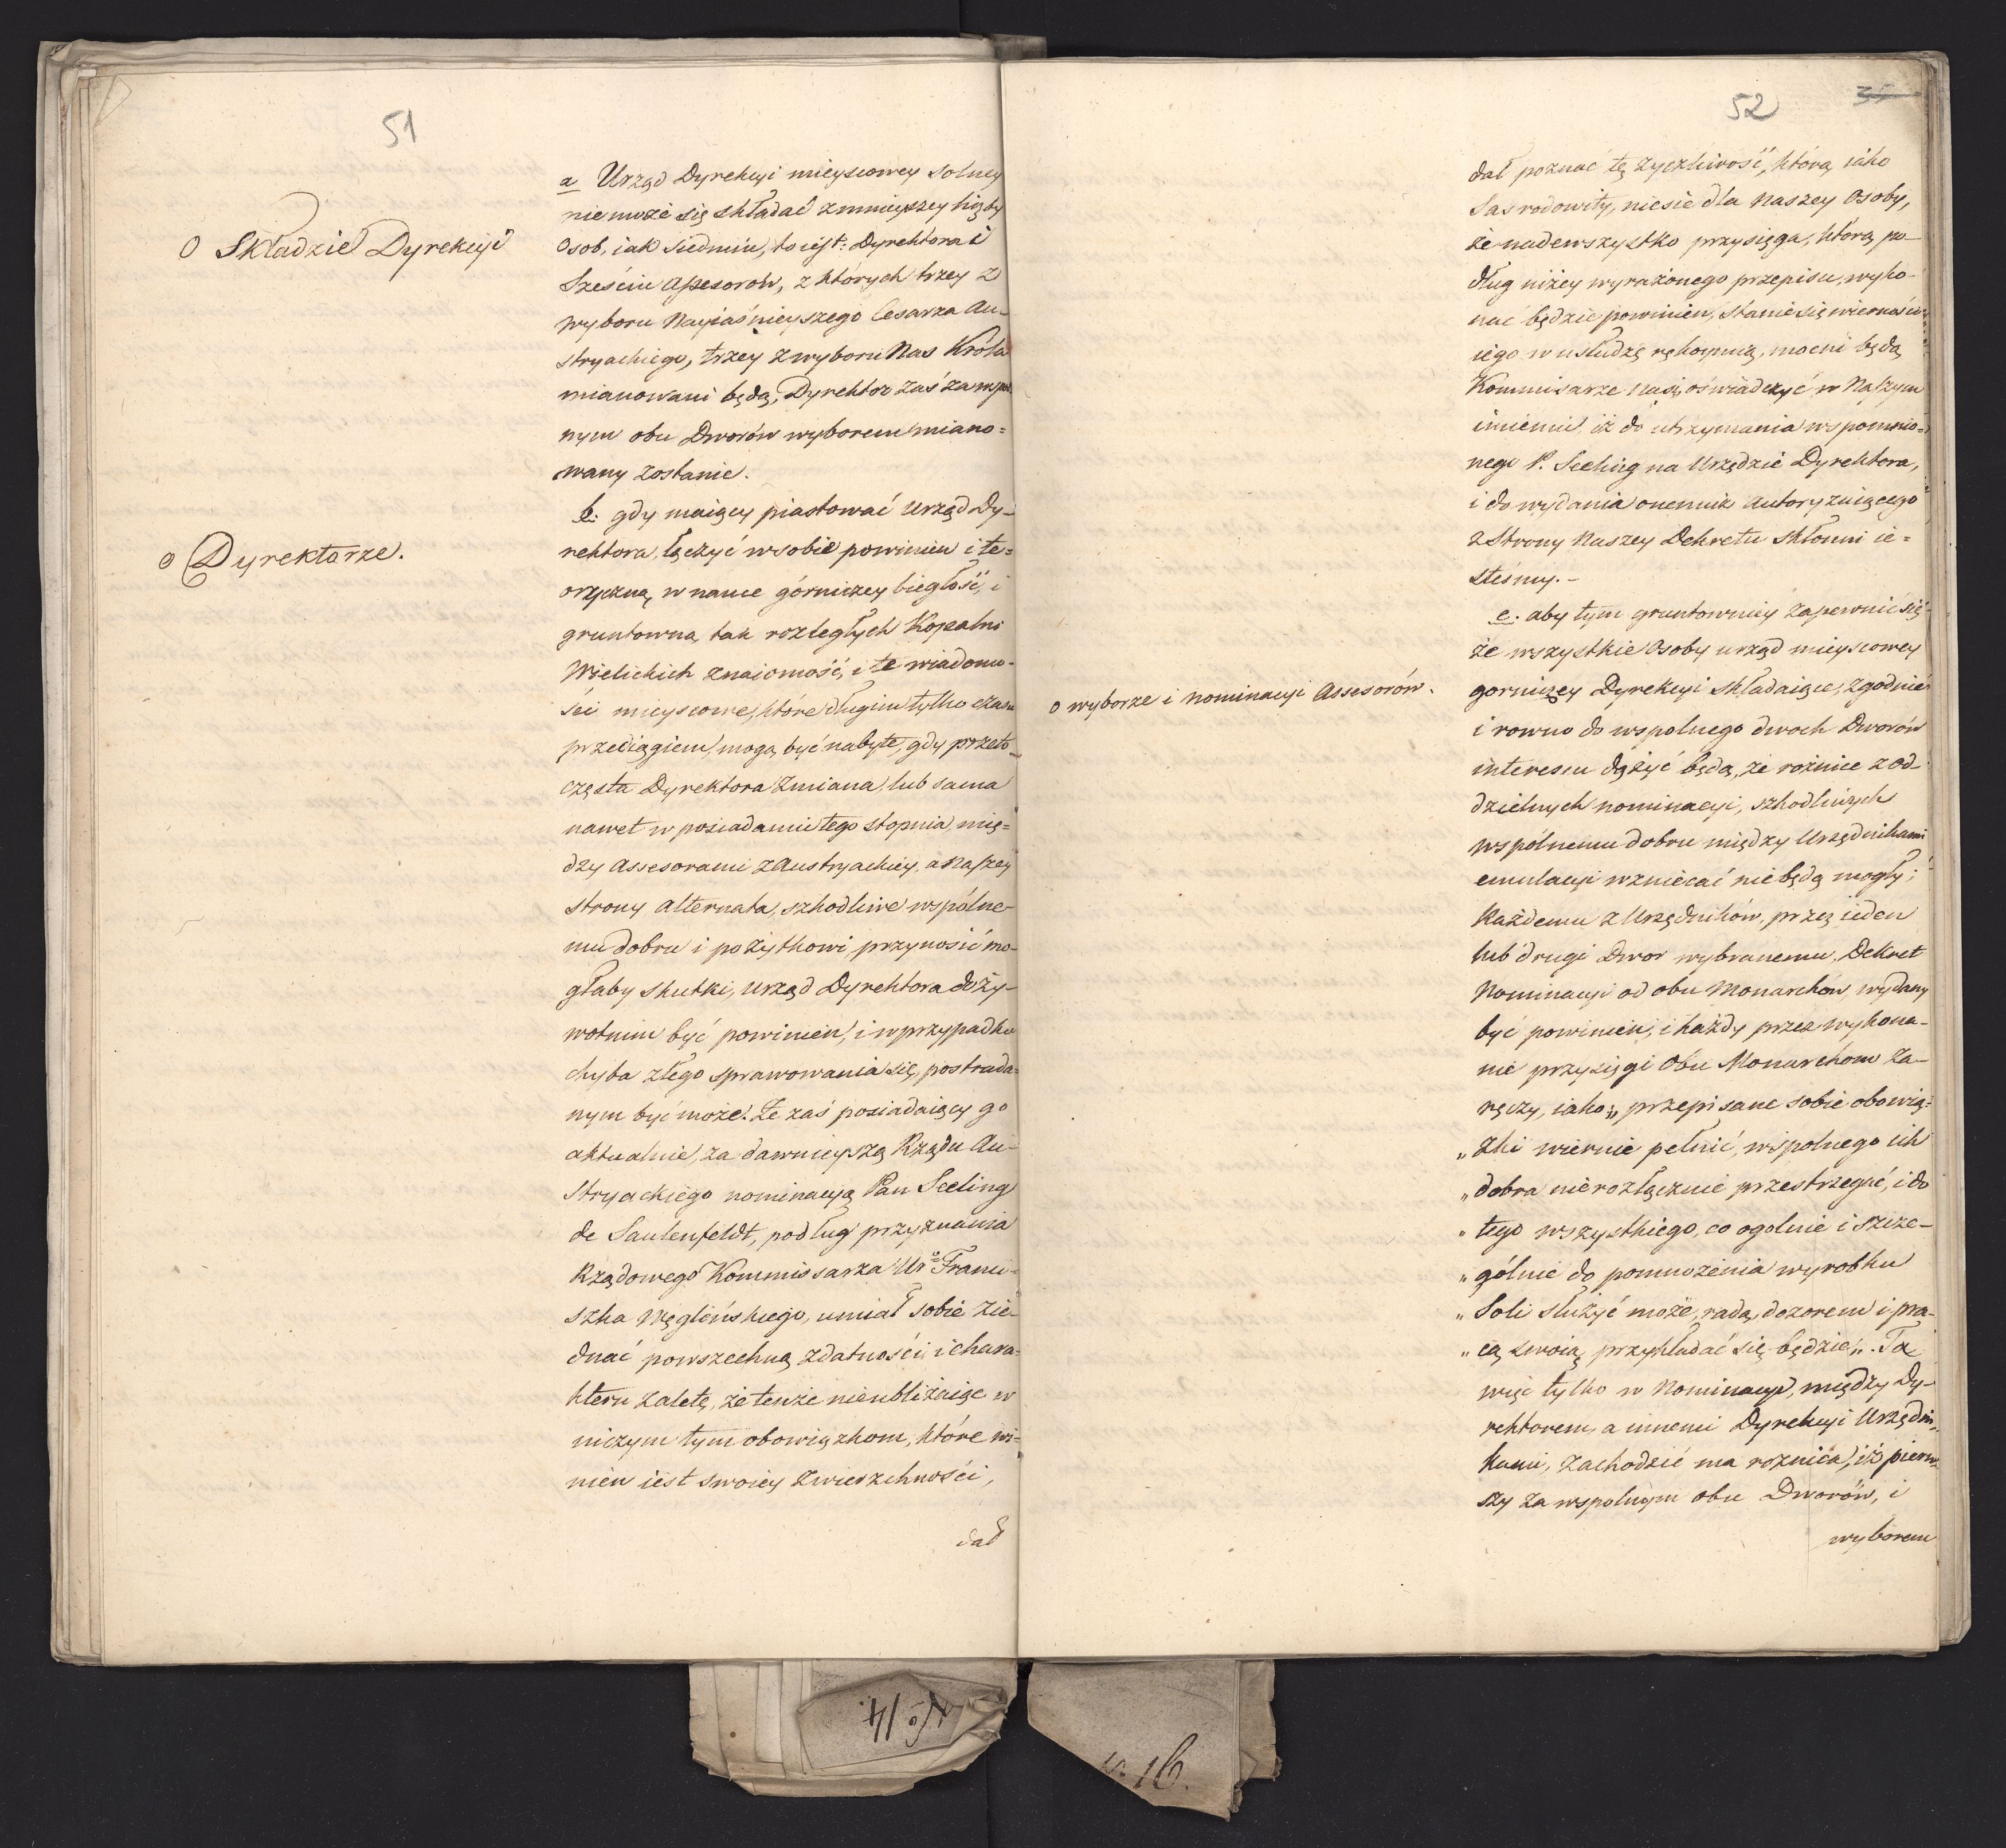 51
O Składzie Dyrekcyi
o Dyrektorze.
a Urząd Dyrekcyi mieyscowey Solney
nie może się składać z mnieyszey liczby
Osob, iak Siedmiu, to iest: Dyrektora i
Sześciu Assesorów, z których trzey z
wyboru Nayiaśnieyszego Cesarza Au-
stryackiego, trzey z wyboru Nas Króla
mianowani będą, Dyrektor zaś za wspol-
nym obu Dworów wyborem miano=
wany zostanie.
b. gdy maiący piastować Urząd Dy-
rektora, łączyć w sobie powinien i te=
oryczną w nauce górniczey biegłość, i
gruntowną tak rozległych Kopalni
Wielickich znaiomość, i te wiadomo-
ści mieyscowe, które długim tylko czasu
przeciągiem, mogą być nabyte, gdy przeto
częsta Dyrektora zmiana, lub sama
nawet w posiadaniu tego stopnia, mię=
dzy Assesorami z Austryackiey, a Naszey
strony Alternata, szkodliwe wspólne-
mu dobru i pożytkowi, przynosić mo-
głaby skutki, Urząd Dyrektora doży-
wotnim być powinien, i w przypadku
chyba złego sprawowania się, postrada-
nym być może. Że zaś posiadaiący go
aktualnie, za dawnieyszą Rządu Au-
stryackiego nominacyą Pan Seeling
de Saulenfeldt, podług przyznania
Rządowego Kommissarza Ur° Franci-
szka Węglińskiego, umiał sobie zie-
dnać powszechną zdatności, i chara-
kteru zaletę, że tenże nieubliżaiąc w
niczym tym obowiązkom, które wi-
nien iest swoiey Zwierzchności,
dał
52
35
o wyborze i nominacyi Assesorów.
dał poznać tę życzliwość, którą iako
Sas rodowity, niesie dla Naszey Osoby,
że nadewszystko przysięga, którą po-
dług niżey wyrażonego przepisu, wyko-
nać będzie powinien, stanie się wierności
iego w usłudze rękoymią, mocni będą
Kommisarze Nasi, oświadczyć w Naszym
imieniu, iż do utrzymania wspomnio=
nego P. Seeling na Urzędzie Dyrektora,
i do wydania onemuż Autoryzuiącego
z Strony Naszey Dekretu skłonni ie=
steśmy.-
c. aby tym gruntowniey zapewnić się
że wszystkie Osoby urząd mieyscowey
gorniczey Dyrekcyi składaiące, zgodnie
i rowno do wspolnego dwoch Dworów
interesu dążyć będą, że rożnice z od-
dzielnych nominacyi, szkodliwych
wspólnemu dobru między Urzędnikami
emulacyi wzniecać nie będą mogły;
każdemu z Urzędników, przez ieden
lub drugi Dwor wybranemu, Dekret
Nominacyi od obu Monarchów, wydany
być powinien, i każdy przez wykona-
nie przysięgi Obu Monarchom za-
ręczy, iako „przepisane sobie obowią=
„zki wiernie pełnić, wspolnego ich
„dobra nierozłącznie przestrzegać, i do
„tego wszystkiego, co ogolnie i szcze-
„gólnie do pomnożenia wyrobku
„Soli służyć może, radą, dozorem i pra-
„cą swoią przykładać się będzie„. Ta
więc tylko w Nominacyi, między Dy-
rektorem, a innemi Dyrekcyi Urzędni-
kami, zachodzić ma roznica, iż pierw-
szy za wspolnym obu Dworów, i
wyborem
No 14.
16.